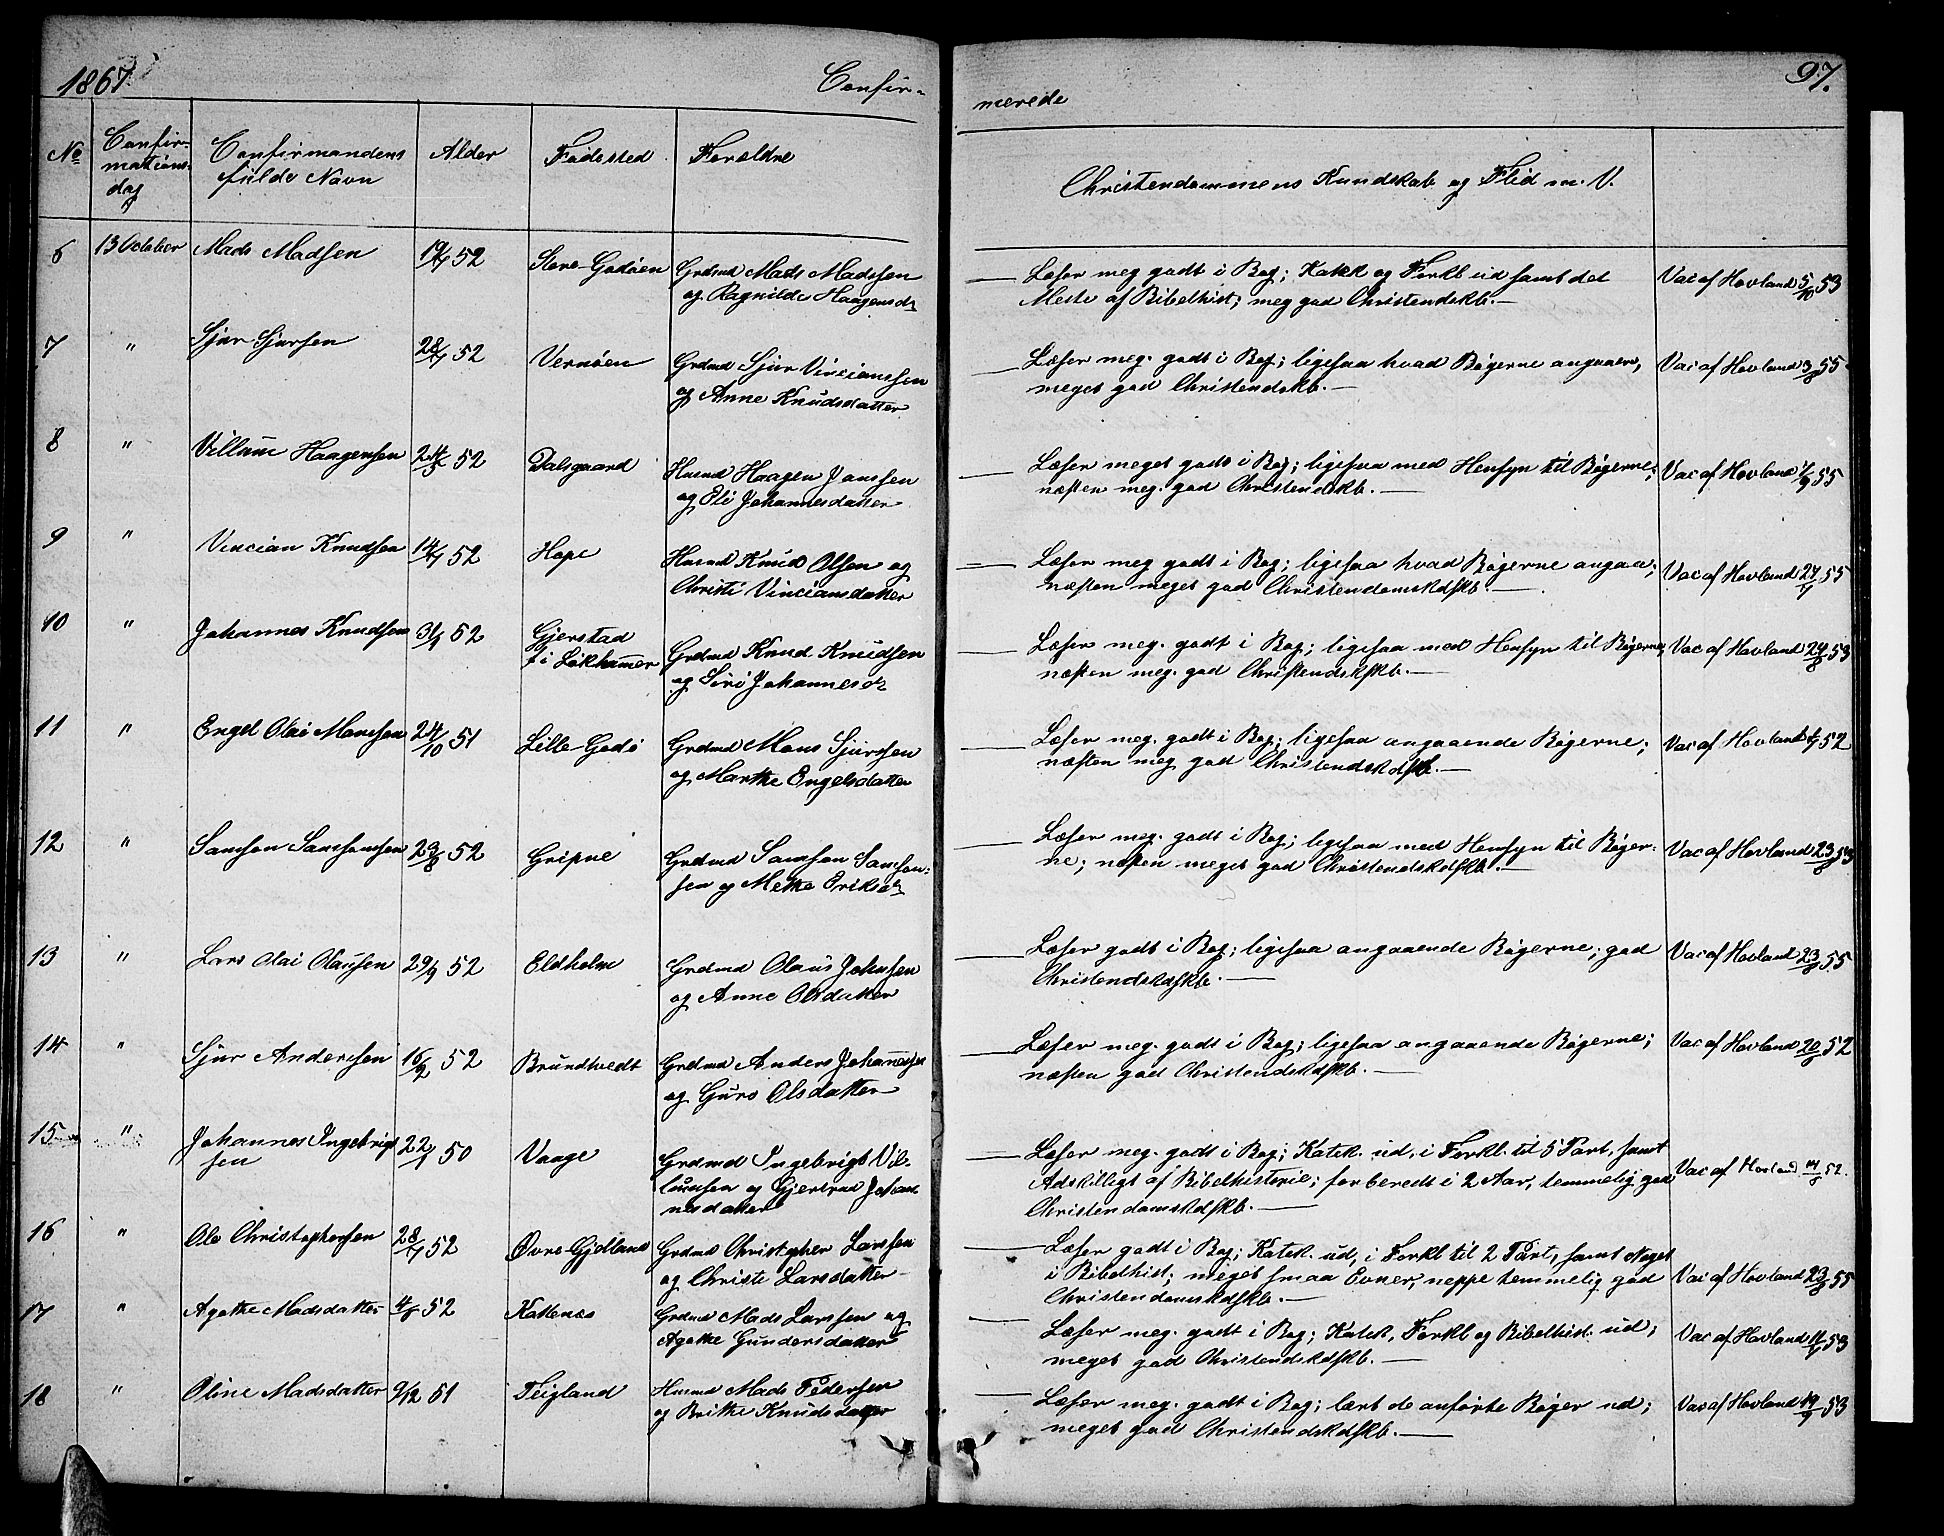 1867.
Confir-
merede
97.
No
Confir-
mations-
dag
Confirmandens
fulde Navn
Alder
Fødested
Forældre
Christendommens Kundskab og Flid m. V.
6 13 October Mads Madsen 52 Store-Godøen Grdmd Mads Madssen
og Ragnilde Haagensdr
Læser meg godt i Bog; Katek og Forkl ud samt det
Meste af Bibelhist; meg god Christendskb.—
Vac af Hovland 5/10 53
7 " Sjur Sjursen 28/1 52 Vernøen Grdmd Sjur Vincianssen
og Anne Knudsdatter
Læser meg. godt i Bog; ligesaa hvad Bøgerne angaaer,
meget god Christendskb.—
Vac af Hovland 55
8 " Villum Haagensen 24/5 52 Dalsgaard Husmd Haagen Janssen
og Eli Johannesdatter
Læser meget godt i Bog; ligesaa med Hensyn til Bøgerne;
næsten meg. god Christendskb.—
Vac af Hovland 55
9 " Vincian Knudsen 14/1 52 Hope Husmd Knud Olsen og
Christi Vinciansdatter
Læser meg godt i Bog; ligesaa hvad Bøgerne angaa;
næsten meget god Christendomskdskb.—
Vac af Hovland 55
10 " Johannes Knudsen 52 Gjerstad
i Løkhamer Grdmd Knud Knudsen
og Siri Johannesdr
Læser meg. godt i Bog; ligesaa med Hensyn til Bøgerne;
næsten meg. god Christendskskb.—
Vac af Hovland 24/8 53
11 " Engel Olai Monssen 24/10 51 Lille Godø Grdmd Mons Sjurssen
og Marthe Engelsdatter
Læser meg. godt i Bog; ligesaa angaaende Bøgerne;
næsten meg god Christendskdskb.—
Vac af Hovland 52
12 " Samson Samsonsen 23/8 52 Gripne Grdmd Samson Samson-
sen og Mette Eriksdr
Læser meg. godt i Bog; ligesaa med Hensyn til Bøger-
ne; næsten meget god Christendskdskb.—
Vac af Hovland 23/8 53
13 " Lars Olai Olaussen 29/9 52 Eldholm Grdmd Olaus Johnsen
og Anne Olsdatter
Læser godt i Bog; ligesaa angaaende Bøgerne; god
Christendskdskb.—
Vac af Hovland 55
14 " Sjur Anderssen 16/2 52 Brundtvedt Grdmd Anders Johannessen
og Guro Olsdatter
Læser meg. godt i Bog; ligesaa angaaende Bøgerne;
næsten god Christendskdskb.—
Vac af Hovland 52
15 " Johannes Ingebrigt
sen 22/1 50 Vaage Grdmd Ingebrigt Vil-
lumsen og Gjertrud Johan
nesdatter
Læser meg. godt i Bog; Katek. ud, i Forkl. til 5 Part, samt
Adskilligt af Bibelhistorie; forberedt i 2 Aar, temmelig god
Christendomskdskb.—
Vac af Hovland 52.
16 " Ole Christophersen 28/1 52 Øvre-Gjelland Grdmd Christopher Larssen
og Christi Larsdatter
Læser godt i Bog; Katek. ud, i Forkl til 2 Part, samt Noget
i Bibelhist; meget smaa Evner, neppe temmelig god
Christendomskdskb.—
Vac af Hovland 55
17 " Agathe Madsdatter 52 Kattenæs Grdmd Mads Larssen og
Agathe Gundersdatter
Læser meg. godt i Bog; Katek, Forkl og Bibelhist. ud;
meget god Christendskdskb.—
Vac af Hovland 53
18 " Oline Madsdatter 9/12 51 Teigland Husmd Mads Pedersen
og Brithe Knudsdatter
Læser meg. godt i Bog; lært de anførte Bøger ud;
meget god Christendskdskb.—
Vac af Hovland 19/9 53